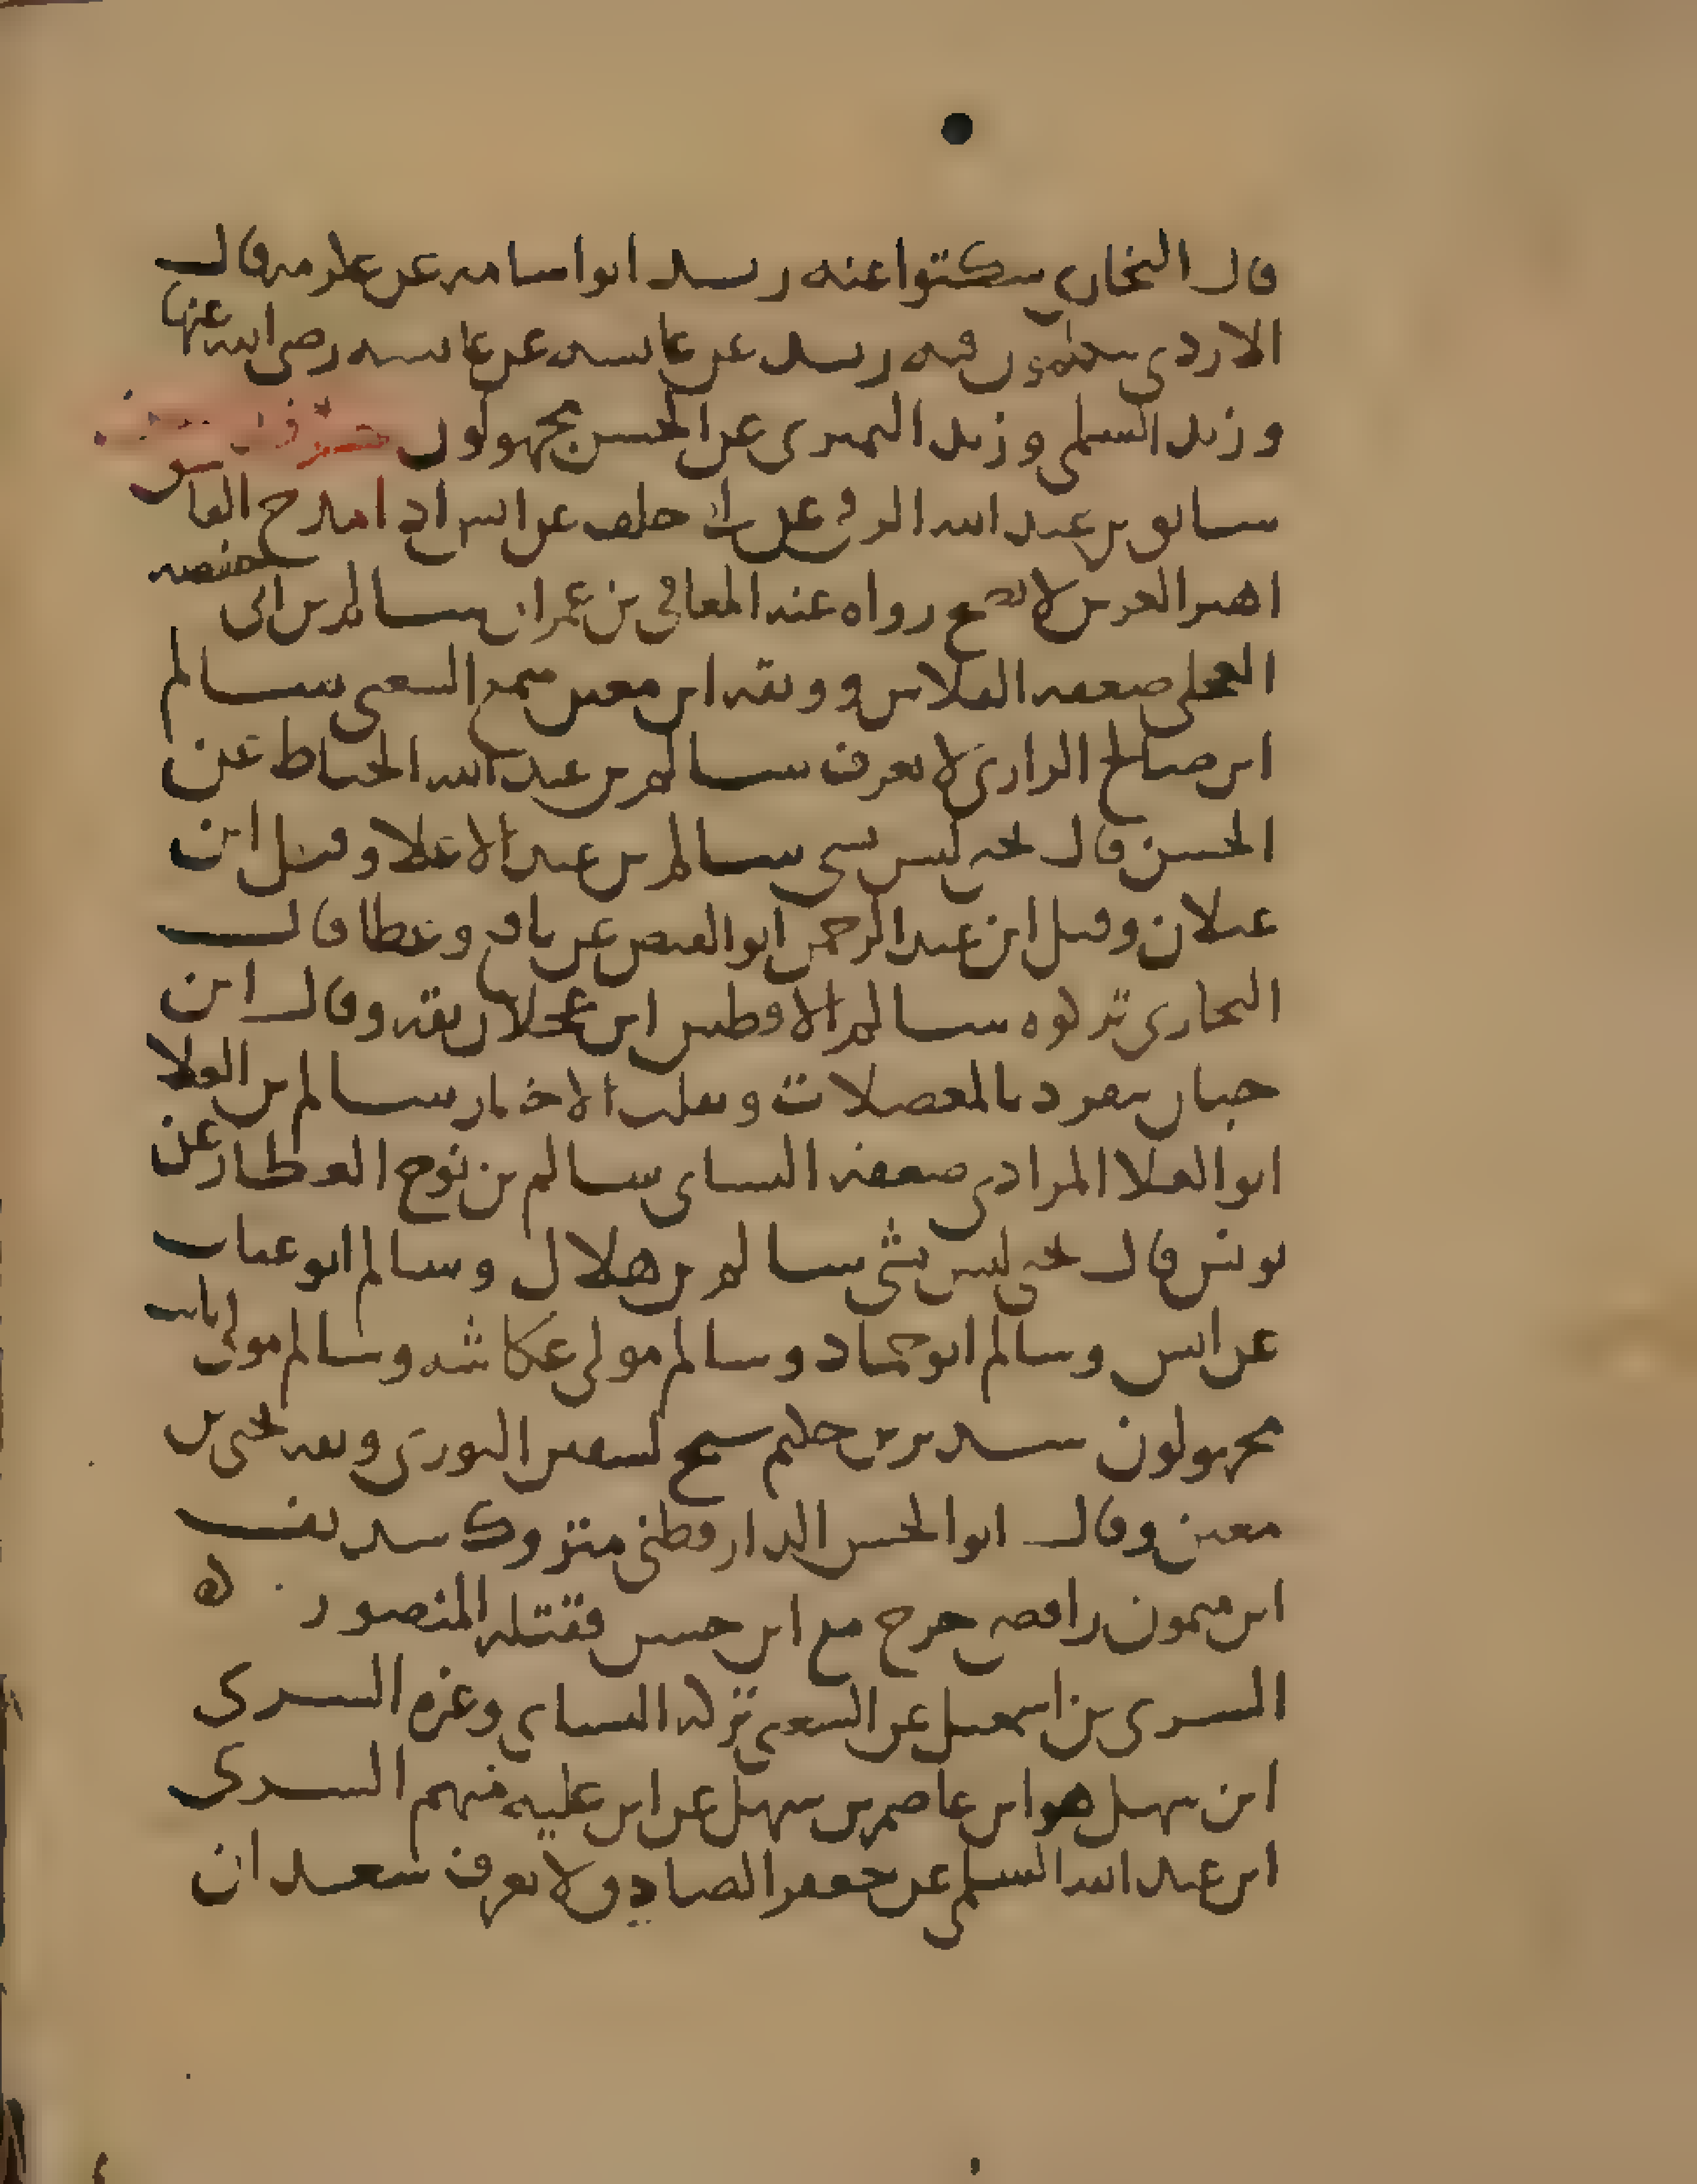 قال البخاري سكتوا عنه زيد ابو اسامه عن عكرمه قال
الازدي يتكلمون فيه زيد عن عايشه عن عايشه رضي الله عنها
وزيد السلمي وزيد النميري عن الحسن مجهولون حرف
سابق بن عبد الله الرقي عن ابي خلف عن انس اذا امدح الفاسق
اهتز العرش لا يصح رواه عنه المعافى بن عمران سالم بن ابي حفصه
العجلي ضعفه الفلاس ووثقه ابن معين سمع الشعبي سالم
ابن صالح الرازي لا يعرف سالم بن عبد الله الخياط عن
الحسن قال يحيى ليس بشي سالم بن عبد الاعلا وقيل ابن
غيلان وقيل ابن عبد الرحمن ابو الفيض عن نافع وعطا قال
البخاري تركوه سالم الافطس ابن عجلان ثقة وقال ابن
حبان يتفرد بالمعضلات ويقلب الاخبار سالم بن العلا
ابو العلا المرادي ضعفه النساي سالم بن نوح العطار عن
يونس قال يحيى ليس بشي سالم بن هلال وسالم ابو غياث
عن انس وسالم ابو حماد وسالم مولى عكاشه وسالم مولى ثابت
مجهولون سدير بن حكيم سمع لسفين الثوري وثقه يحيى بن
معين وقال ابو الحسن الدارقطني متروك سديف
ابن ميمون رافضي خرج مع ابن حسن فقتله المنصور ٥
السري بن اسمعيل عن الشعبي تركه النساي وغيره السري
ابن سهل هو ابن عاصم بن سهل عن ابن علية متهم السري
ابن عبد الله السلمي عن جعفر الصادق لا يعرف سعدان